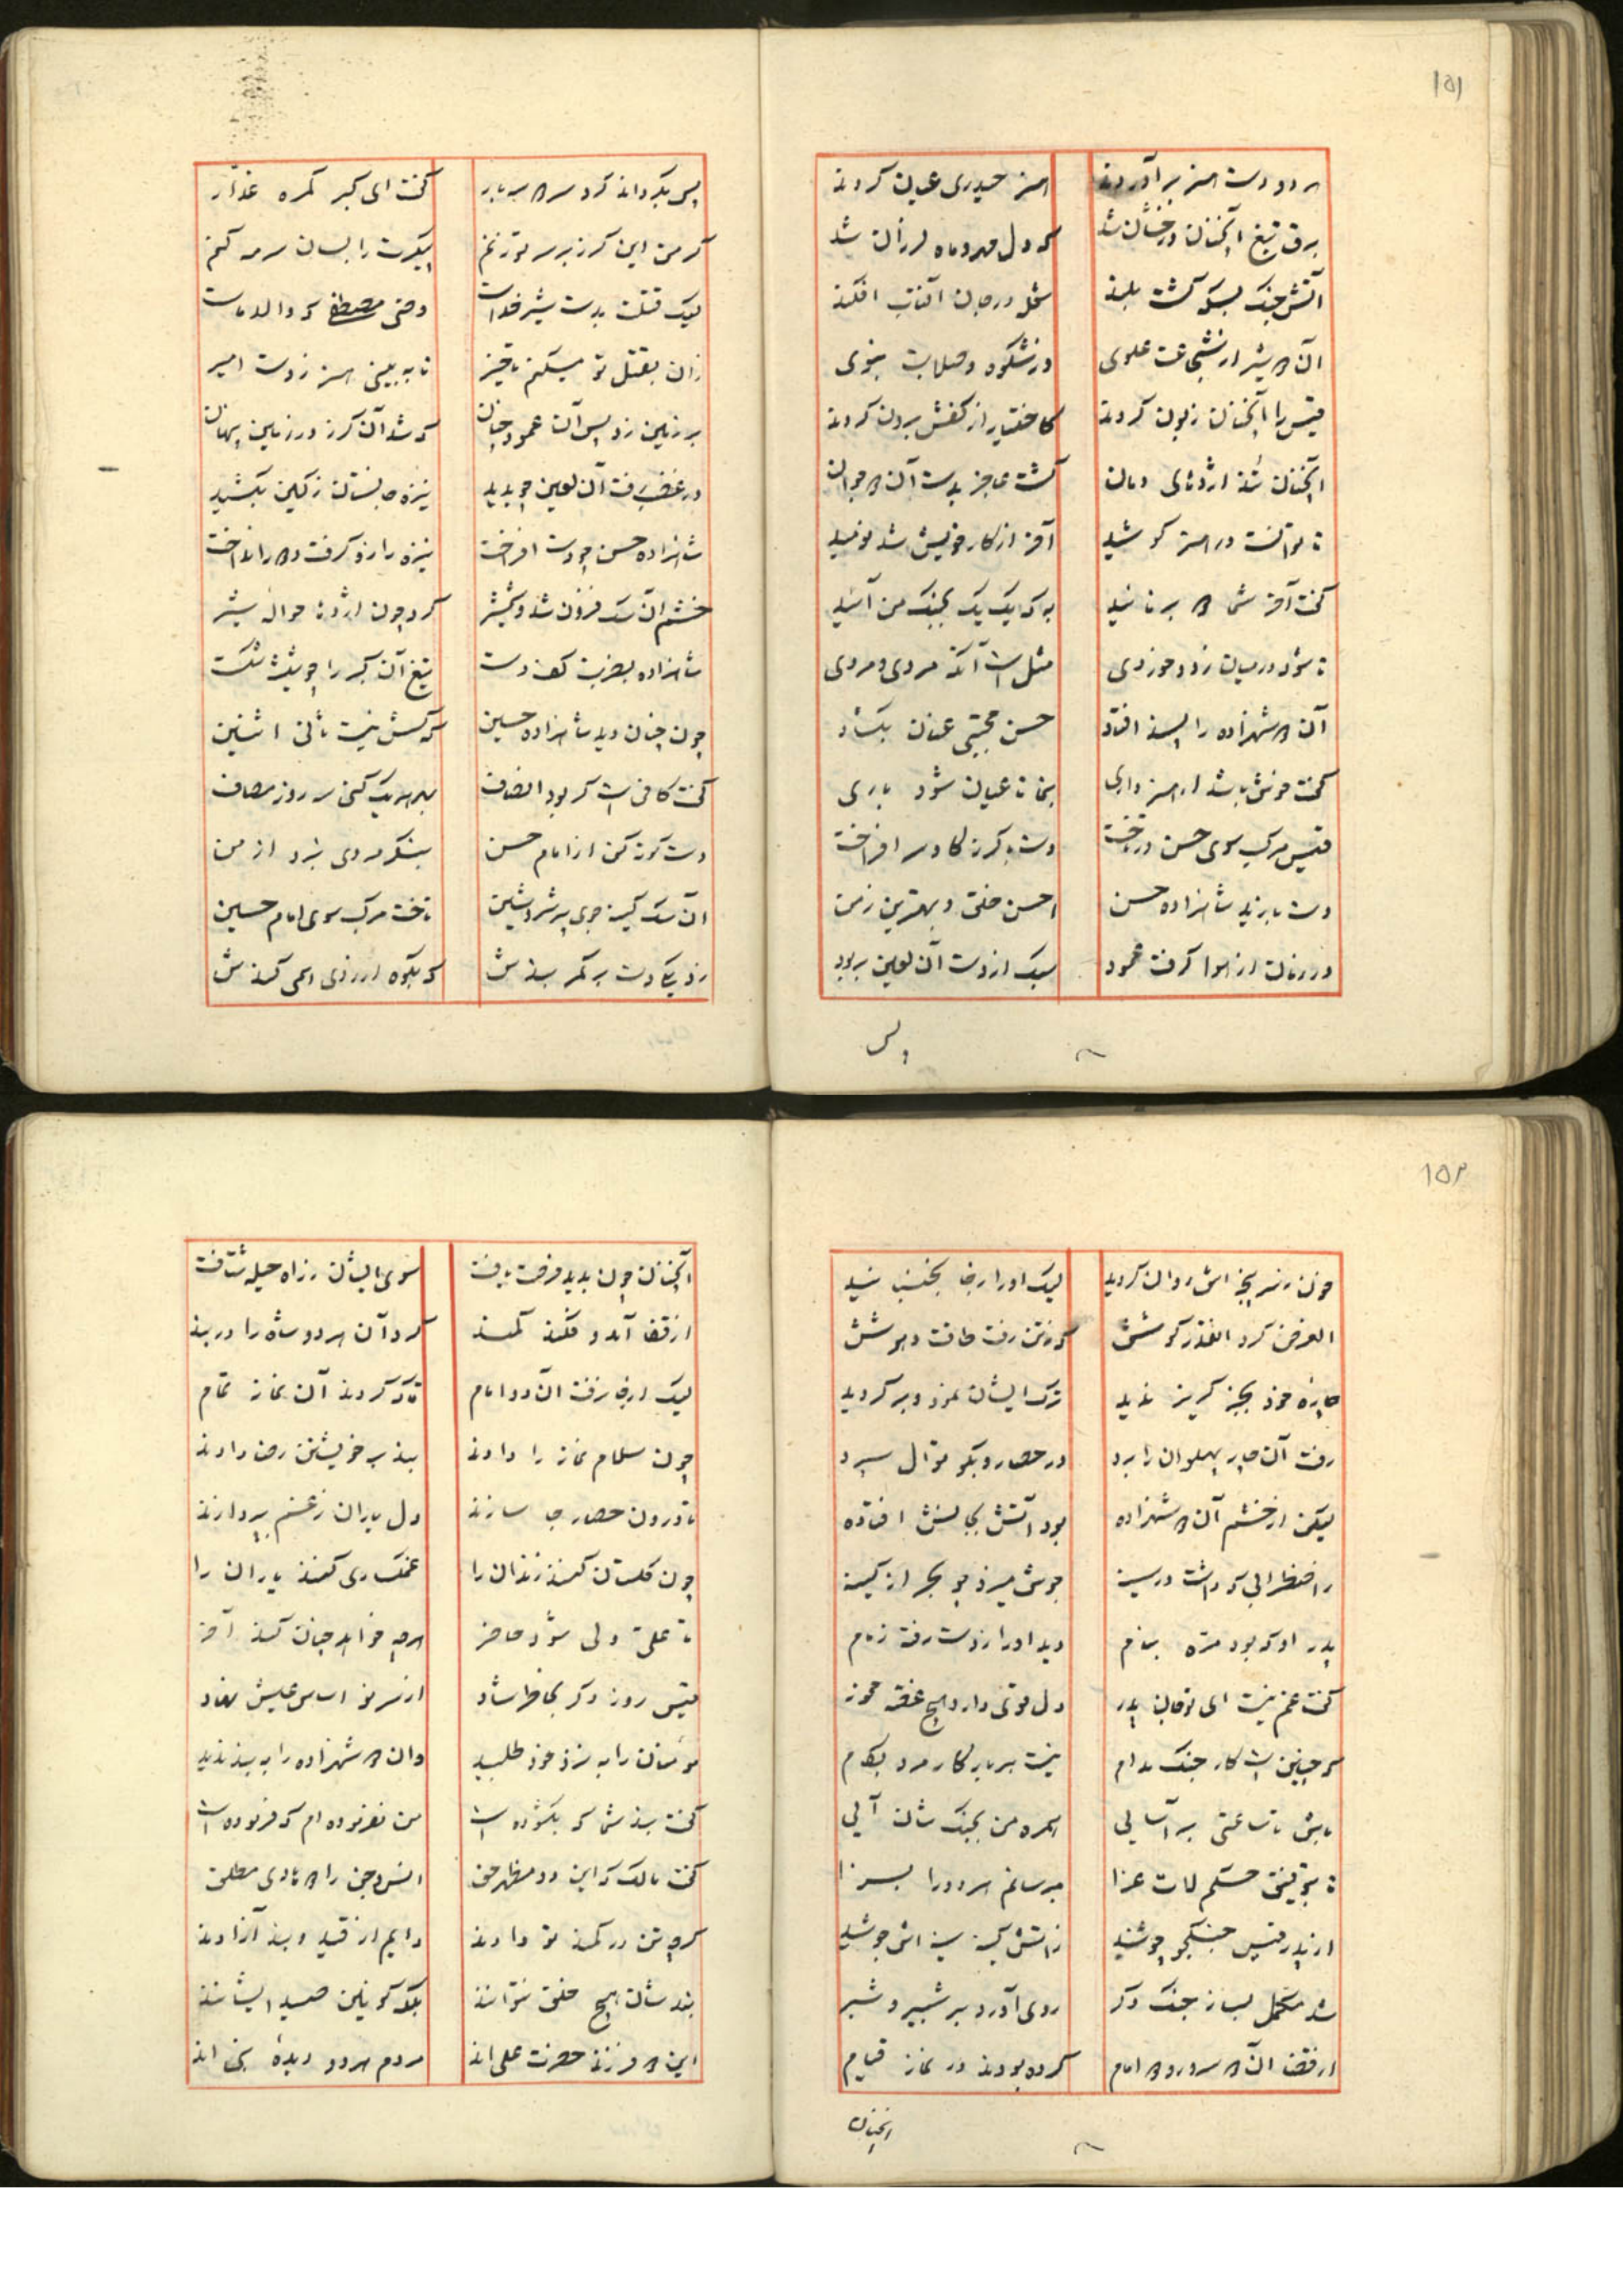 ۱۵۱
هر دو دست هنر برآوردند هنر حیدری عیان کردند
برق تیغ آنچنان درخشان شد که دل مهر و ماه لرزان شد
آتش جنک بسکه کشت بلند شعل در جان آفتاب افکند
آن ۲ شیر از شجاعت علوی در شکوه و صلابت نبوی
قیس را آنچنان زبون کردند کاختیار از کفش برون کردند
آنچنان تند اژدهای دمان کشت عاجز بدست آن ۲ جوان
تا توانست در هنر کوشید آخر از کار خویش شد نومید
کفت آخر شما ۲ برنائید به که یک یک بجنک من آئید
تا شود در میان زد و خوردی مثل است آنکه مردی و مردی
آن ۲ شهزاده را پسند افتاد حسن مجتبی عنان بکشاد
کفت خوش باشد ار هنر داری بنما تا عیان شود باری
قیس مرکب سوی حسن در تاخت دست با کرز کاو سر افراخت
دست یازید شاهزاده حسن احسن خلق و بهترین زمن
در زمان از هوا کرفت عمود سبک از دست آن لعین بربود
پس
پس بکرداند کرد سر ۲ سه بار کفت ای کبر کمره غدار
کر من این کرز بر سر تو زنم پیکرت را بسان سرمه کنم
لیک قتلت بدست شیر خداست وصی مصطفی که والد ماست
زان بقتل تو میکنم تاخیر تا به بینی هنر ز دست امیر
بر زمین زد پس آن عمود چنان که شد آن کرز در زمین پنهان
در غضب رفت آن لعین چو بدید نیزه جانستان ز کین بکشید
شاهزاده حسن چو دست افراخت نیزه را زو کرفت و ۲ر انداخت
خشم آن سک فزون شد و شمشیر کرد چون اژدها حواله شیر
شاهزاده بضربت کف دست تیغ آن کبر را چو شیشه شکست
چون چنان دید شاهزاده حسین که کسش نیست ثانی اثنین
کفت کافی است کر بود انصاف بهر یک کس سه روز مصاف
دست کوته کن از امام حسن بنکر مردی نبرد از من
آن سک کینه جوی پر شر و شین تاخت مرکب سوی امام حسین
زد یکی دست بر کمر بندش که بکوه ار زدی همی کندش
۱۵۲
چون ز سر پنجه اش روان کردید لیک او را ز جا بجنبنید
الغرض کرد آنقدر کوشش که ز تن رفت طاقت و هوشش
چاره خود بجز کریز ندید ترک ایشان نمود و بر کردید
رفت آن چار پهلوان را برد در حصار و بکوتوال سپرد
لیکن از خشم آن ۲ شهزاده بود آتش بجانش افتاده
ز اضطرابی که داشت در سینه جوش میزد چو بحر از کینه
پدر او که بود مره بنام دید او را ز دست رفته زمام
کفت غم نیست ای تو جان پدر دل قوی دار و هیچ غصه مخور
که چنین است کار جنک مدام نیست هر بار کار مرد بکام
باش تا ساعتی بر آسایی همره من بجنک شان آیی
تا بتوفیق حکم لات عزا برسانم هر دو را بسزا
از پدر قیس جنکجو چو شنید ز آتش کینه سینه اش جوشید
شد مکمل بساز جنک دکر روی آورد بر شبیر و شبر
از قضا آن ۲ سرور و ۲ امام کرده بودند در نماز قیام
آنچنان
آنچنان چون بدید فرصت یافت سوی ایشان ز راه حیله شتافت
از قفا آمد و فکند کمند کرد آن هر دو شاه را در بند
لیک از جا نرفت آن دو امام تا که کردند آن نماز تمام
چون سلام نماز را دادند بند بر خویشتن رضا دادند
تا درون حصار جا سازند دل یاران ز غم بپردازند
چون کلستان کنند زندان را غمکساری کنند یاران را
تا علی ولی شود حاضر هرچه خواهد چنان کند آخر
قیس روز دکر بخاطر شاد از سر نو اساس عیش نهاد
مؤمنان را به نزد خود طلبید وان ۲ شهزاده را به بند ندید
کفت بند شما که بکشوده است من نفرموده ام که فرموده است
کفت مالک که این دو مظهر حق انس و جن را ۲ هادی مطلق
کرچه تن در کمند تو دادند دایم از قید و بند آزادند
بند شان هیچ خلق نتوانند بلکه کونین صید ایشانند
این ۲ فرزند حضرت علی اند مردم هر دو دیده نبی اند